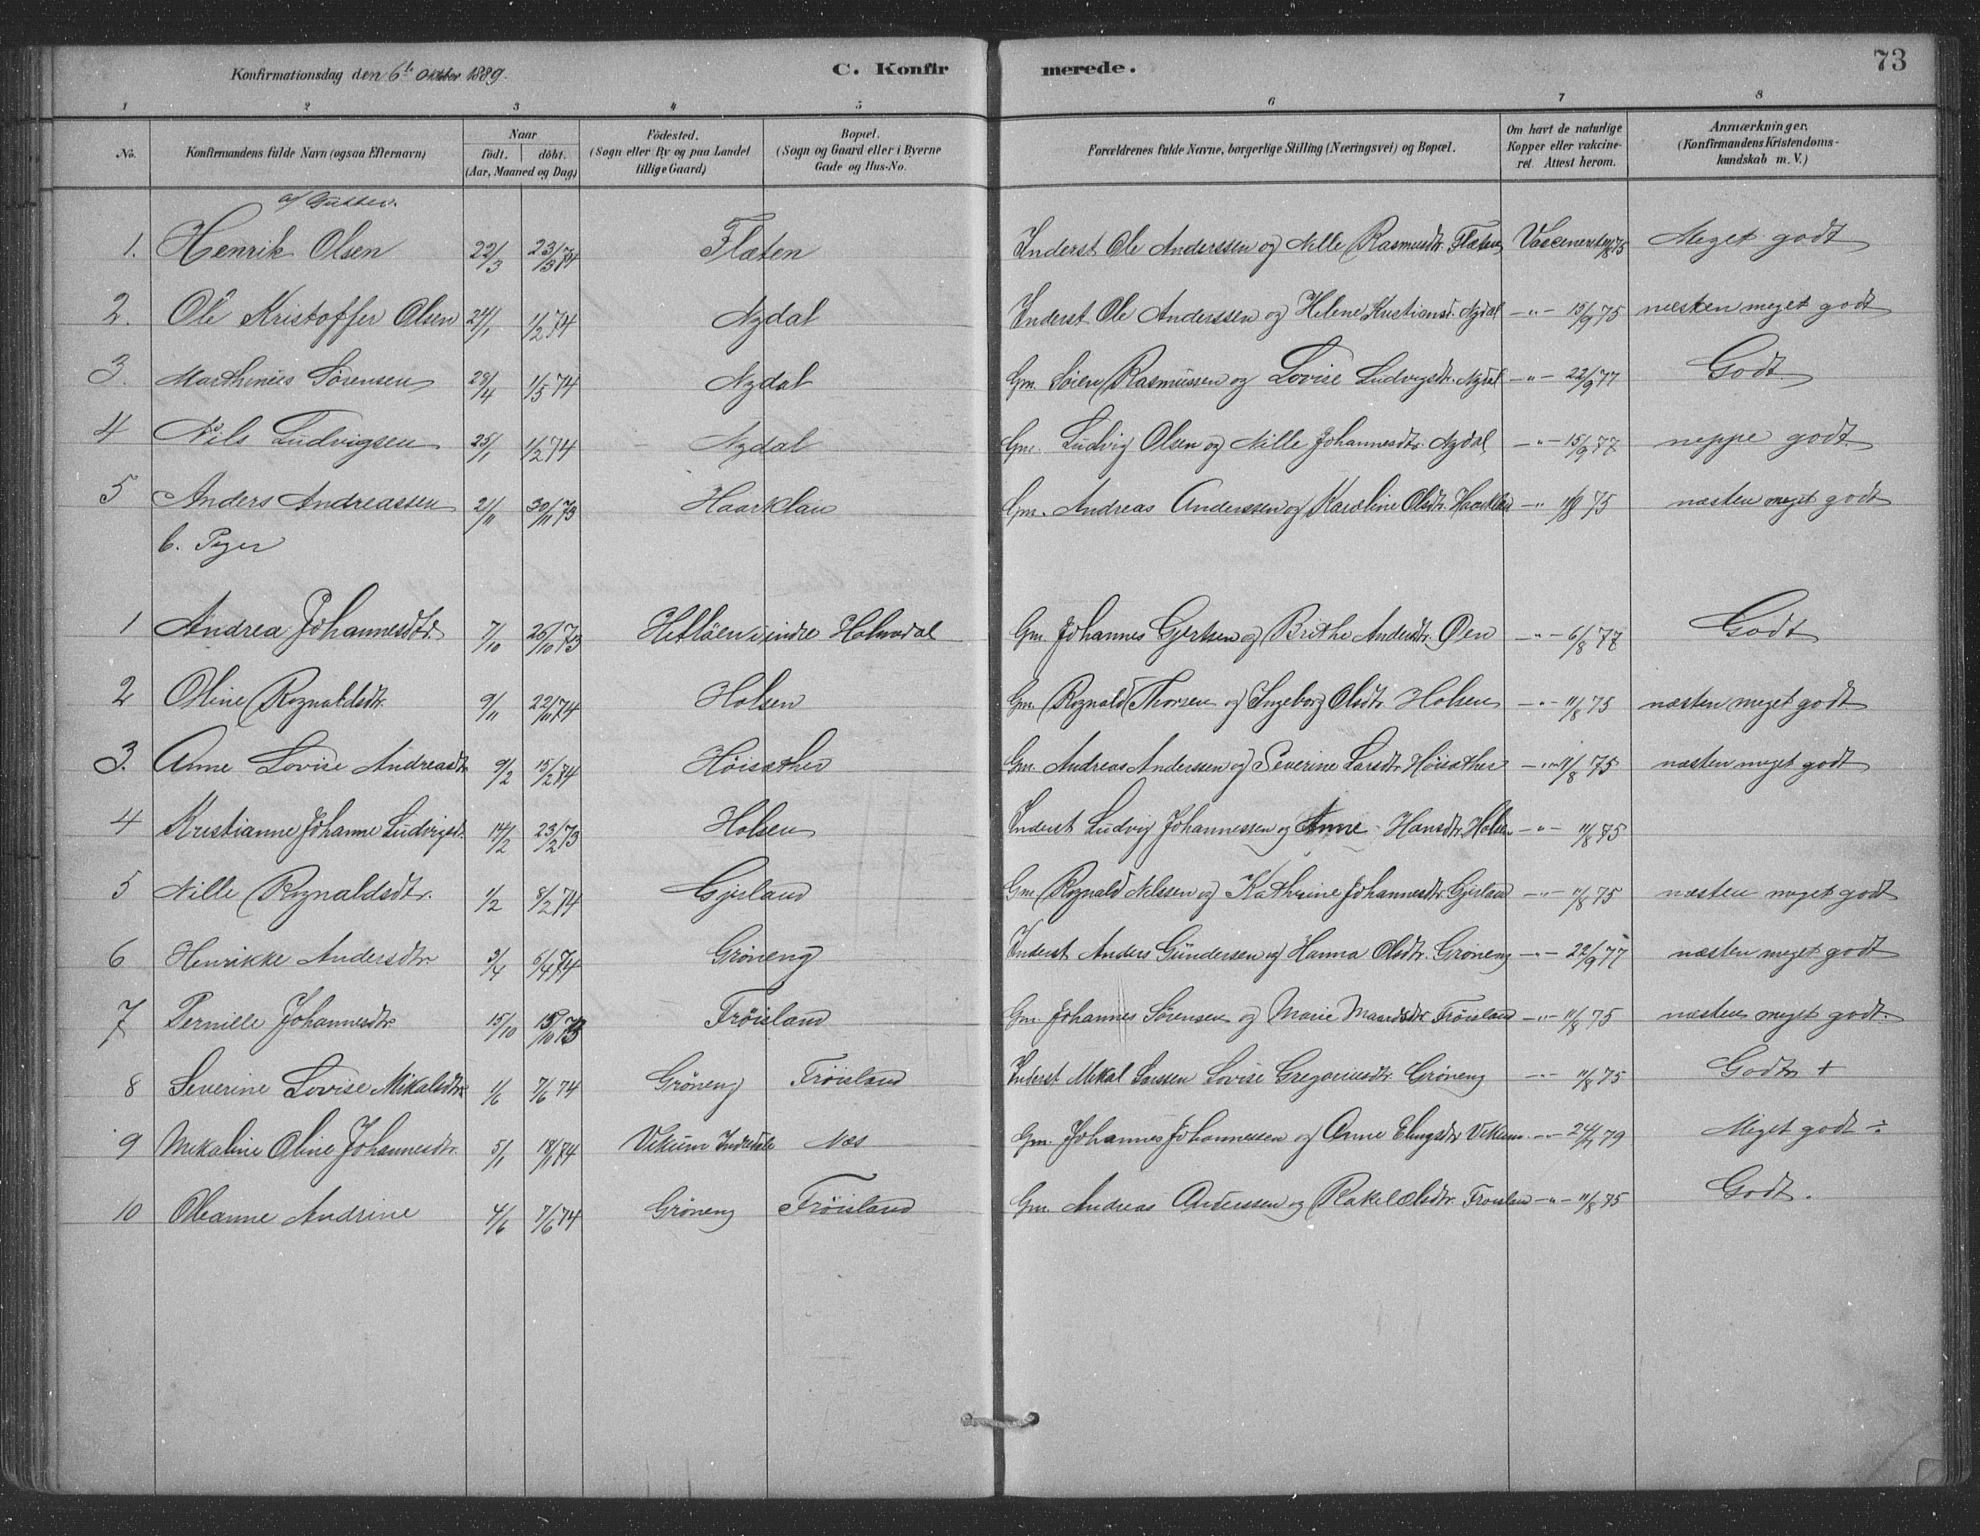 Konfirmationsdag den 6te Oktober 1889.
C. Konfirmerede.
73
1 2 3 4 5 6 7 8
No. Konfirmandens fulde Navn (ogsaa Efternavn) Naar födt. döbt. (Aar, Maaned og Dag) Födested. (Sogn eller By og paa Landet tillige Gaard) Bopæl. (Sogn og Gaard eller i Byerne Gade og Hus-No. Forældrenes fulde Navne, borgerlige Stilling (Næringsvei) og Bopæl. Om havt de naturlige Kopper eller vakcineret. Attest herom. Anmærkninger. (Konfirmandens Kristendomskundskab m. V.)
a/ Gutter.
1. Henrik Olsen 22/3 23/3 74 Flæten Inderst Ole Anderssen og Nille Rasmusdtr. Flæten 75 Meget godt
2. Ole Kristoffer Olsen 24/1 1/2 74 Nydal Inderst Ole Anderssen og Helene Kristiansd. Nydal -"- 15/9 75 næsten meget godt
3. Marthinus Sørensen 28/4 1/5 74 Nydal Gm. Sören Rasmussen og Lovise Ludvigsdtr. Nydal -"- 22/9 77 Godt
4 Nils Ludvigsen 25/1 1/2 74 Nydal Gm. Ludvig Olsen og Nille Johannesdtr. Nydal -"- 15/9 77 neppe godt
5 Anders Andreassen 21/11 30/11 73 Haarklau Gm. Andreas Anderssen og Karoline Olsdtr. Haarklau -"- 11/8 75 næsten meget godt
b. Piger
1 Andrea Johannesdtr. 7/10 26/10 73 i indre Holmedal Gm. Johannes Gjertsen og Brithe Andersdtr. Øen -"- 6/8 77 Godt
2 Oline Rognaldsdtr. 9/11 22/11 74 Holsen Gm. Rognald Thorsen og Ingeborg Olsdtr. Holsen -"- 11/8 75 næsten meget godt
3. Anne Lovise Andreasdtr 9/2 15/2 74 Høisæther Gm. Andreas Anderssen og Severine Larsdtr. Høisæther -"- 11/8 75 næsten meget godt
4 Kristianne Johanne Ludvigsdt. 14/2 23/2 73 Holsen Inderst Ludvig Johannessen og Anne Hansdtr. Holsen -"- 11/8 75
5 Nille Rognaldsdtr. 1/2 8/2 74 Gjerland Gm Rognald Nilssen og Kathrine Johannesdtr. Gjerland -"- 11/8 75 næsten meget godt
6 Henrikke Andersdtr. 3/4 6/4 74 Grøneng Inderst Anders Gundersen og Hanna Olsdtr. Grøneng -"- 22/9 77 næsten meget godt
7 Pernille Johannesdtr 15/10 73 Frøisland Gm. Johannes Sørensen og Marie Frøisland -"- 11/8 75 næsten meget godt.
8 Severine Lovise Mikalsdtr. 1/6 7/6 74 Grøneng Frøisland Inderst Mikal Larssen Lovise Gregoriusdtr. Grøneng -"- 11/8 75 Godt +
9 Mikaline Oline Johannesdtr. 5/1 18/1 74 Vikum Næs Gm. Johannes Johannessen og Anne Elingsdtr Vikum -"- 79 Meget godt ÷
10 Oleanne Andrine 4/6 7/6 74 Grøneng Frøisland Gm. Andreas Anderssen og Rakel Olsdtr. Frøisland -"- 11/8 75 Godt.